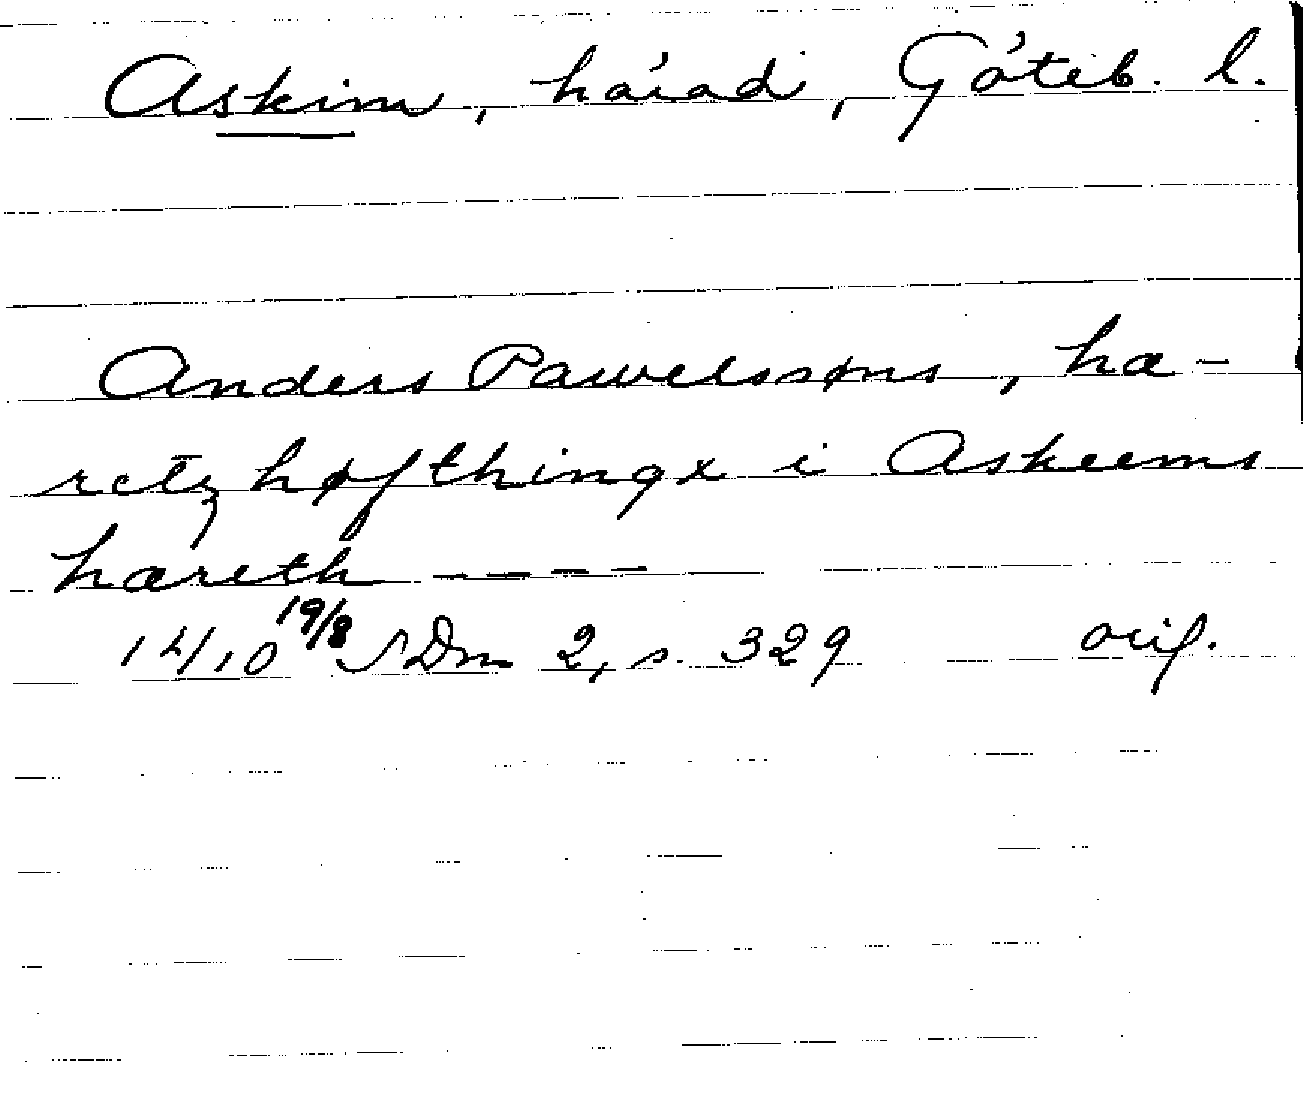 Askim, härad, Göteb. l.
Anders Pawelssøns, hæ-
retz høfthingx i Askeems
hæreth ----
1410 19/8 SDm 2, s. 329 orig.